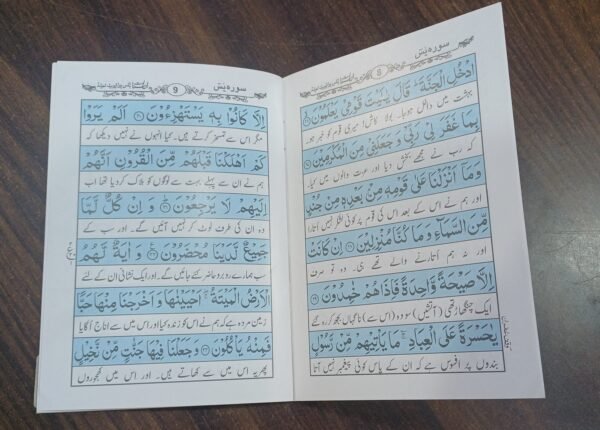 سورہ یٰسٓ
8
ادْخُلِ الْجَنَّةَ ؕ قَالَ یٰلَیْتَ قَوْمِیْ یَعْلَمُوْنَ ۟ۙ
بہشت میں داخل ہوجا۔ بولا کاش! میری قوم کو خبر ہو
بِمَا غَفَرَ لِیْ رَبِّیْ وَ جَعَلَنِیْ مِنَ الْمُكْرَمِیْنَ
کہ رب نے مجھے بخش دیا اور عزت والوں میں کیا۔
وَ مَاۤ اَنْزَلْنَا عَلٰى قَوْمِهٖ مِنْۢ بَعْدِهٖ مِنْ جُنْدٍ
اور ہم نے اس کے بعد اس کی قوم پر کوئی لشکر نہیں اتارا
مِّنَ السَّمَآءِ وَ مَا كُنَّا مُنْزِلِیْنَ ﴿۲۸﴾ اِنْ كَانَتْ
اور نہ ہم اُتارنے والے تھے ہی۔ وہ تو صرف
اِلَّا صَیْحَةً وَّاحِدَةً فَاِذَا هُمْ خٰمِدُوْنَ ﴿۲۹﴾
ایک چنگھاڑ تھی (آتشیں) سو وہ (اس سے) ناگہاں بجھ کر رہ گئے
یٰحَسْرَةً عَلَى الْعِبَادِ ؔۚ مَا یَاْتِیْهِمْ مِّنْ رَّسُوْلٍ
بندوں پر افسوس ہے کہ ان کے پاس کوئی پیغمبر نہیں آتا
سورہ یٰسٓ
9
اِلَّا كَانُوْا بِهٖ یَسْتَهْزِءُوْنَ ﴿۳۰﴾ اَلَمْ یَرَوْا
مگر اس سے تمسخر کرتے ہیں۔ کیا انہوں نے نہیں دیکھا کہ
كَمْ اَهْلَكْنَا قَبْلَهُمْ مِّنَ الْقُرُوْنِ اَنَّهُمْ
ہم نے ان سے پہلے بہت سے لوگوں کو ہلاک کردیا تھا اب
اِلَیْهِمْ لَا یَرْجِعُوْنَ ﴿۳۱﴾ وَ اِنْ كُلٌّ لَّمَّا
وہ ان کی طرف لوٹ کر نہیں آئیں گے۔ اور سب کے
جَمِیْعٌ لَّدَیْنَا مُحْضَرُوْنَ ﴿۳۲﴾ وَ اٰیَةٌ لَّهُمُ
سب ہمارے روبرو حاضر کئے جائیں گے۔ اور ایک نشانی ان کے لئے
الْاَرْضُ الْمَیْتَةُ ۚۖ اَحْیَیْنٰهَا وَ اَخْرَجْنَا مِنْهَا حَبًّا
زمین مردہ ہے کہ ہم نے اس کو زندہ کیا اور اس میں سے اناج اُگایا
فَمِنْهُ یَاْكُلُوْنَ ﴿۳۳﴾ وَ جَعَلْنَا فِیْهَا جَنّٰتٍ مِّنْ نَّخِیْلٍ
پھر یہ اس میں سے کھاتے ہیں۔ اور اس میں کھجوروں